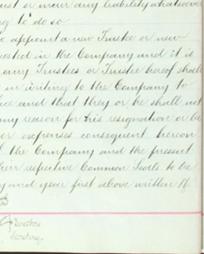 or incur any liability whatsoever
to do so
appoint a new Trustee or new
in the Company and it is
any Trustees or Trustee hereof shall
in writing to the Company to
and that they or he shall not
any reason for his resignation or be
or expenses consequent hereon
the Company and the present
respective Common Seals to be
and year first above written